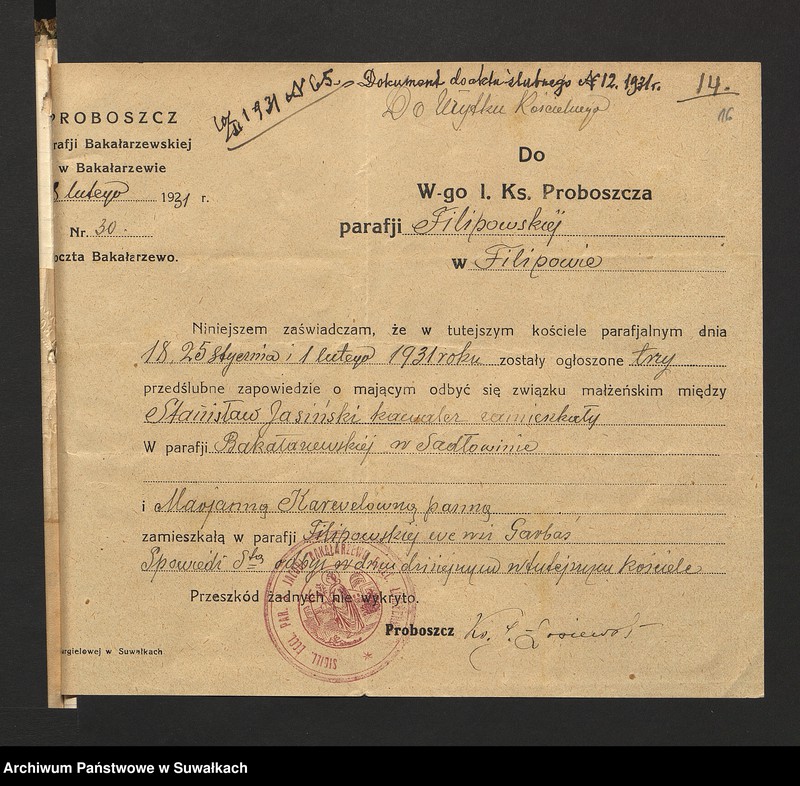 1931 № 65.
Dokument do aktu ślubnego № 12. 1931 r.
14.
Do Użytku Kościelnego
16
PROBOSZCZ
rafji Bakałarzewskiej
w Bakałarzewie
lutego 1931 r.
Nr. 30.
oczta Bakałarzewo.
Do
W-go I. Ks. Proboszcza
parafji Filipowskiej
w Filipowie
Niniejszem zaświadczam, że w tutejszym kościele parafjalnym dnia
18, 25 stycznia i 1 lutego 1931 roku zostały ogłoszone trzy
przedślubne zapowiedzie o mającym odbyć się związku małżeńskim między
Stanisław Jasiński kawaler zamieszkały
W parafji Bakałarzewskiej w Sadłowinie
i Marjanną Karewelówną panną
zamieszkałą w parafji Filipowskiej we wsi Garbaś
Spowiedź Stą odbył w dniu dzisiejszym w tutejszym kościele
Przeszkód żadnych nie wykryto.
Proboszcz Ks.
SIGILL. ECCL. PAR.
argielowej w Suwałkach
Archiwum Państwowe w Suwałkach